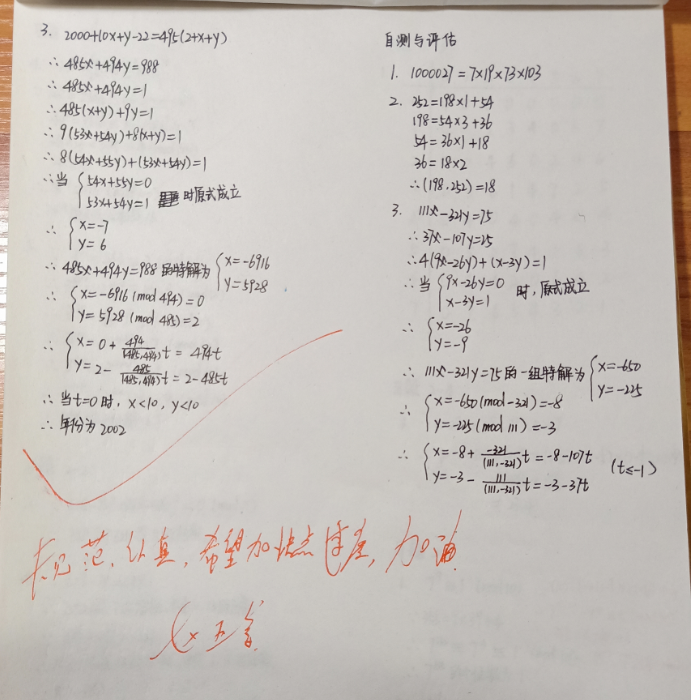 3. 2000+10x+y-22=495(2+x+y)
∴485x+494y=988
∴485x+494y=1
∴485(x+y)+9y=1
∴9(53x+54y)+8(x+y)=1
∴8(54x+55y)+(53x+54y)=1
∴当{54x+55y=0
53x+54y=1 时原式成立
∴{x=-7
y=6
∴485x+494y=988的特解为{x=-6916
y=5928
∴{x=-6916(mod 494)=0
y=5928(mod 485)=2
∴{x=0+494/(485,494)t=494t
y=2-485/(485,494)t=2-485t
∴当t=0时,x<10,y<10
∴年份为2002
自测与评估
1. 1000027=7×19×73×103
2. 252=198×1+54
198=54×3+36
54=36×1+18
36=18×2
∴(198,252)=18
3. 111x-321y=75
∴37x-107y=25
∴4(9x-26y)+(x-3y)=1
∴当{9x-26y=0
x-3y=1 时,原式成立
∴{x=-26
y=-9
∴111x-321y=75的一组特解为{x=-650
y=-225
∴{x=-650(mod-321)=-8
y=-225(mod 111)=-3
∴{x=-8+-321/(111,-321)t=-8-107t
y=-3-111/(111,-321)t=-3-37t (t≤-1)
规范,认真,希望加快点速度,加油